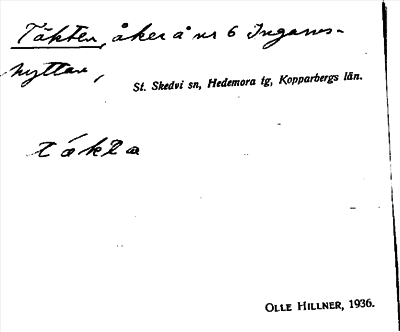 Täkten, åker å nr 6 Ingarvs-
hyttan,
St. Skedvi sn, Hedemora tg, Kopparbergs län.
OLLE HILLNER, 1936.